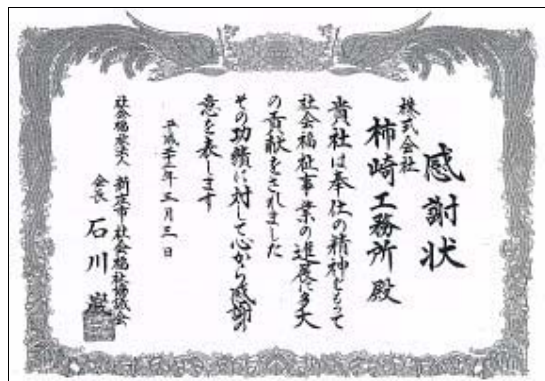 感謝状
株式会社
柿崎工務所殿
貴社は奉仕の精神をもって
社会福祉事業の進展に多大
の貢献をされました
その功績に対して心から感謝の
意を表します
平成二十一年三月三日
社会福祉法人 新庄市社会福祉協議会
会長 石川 巌